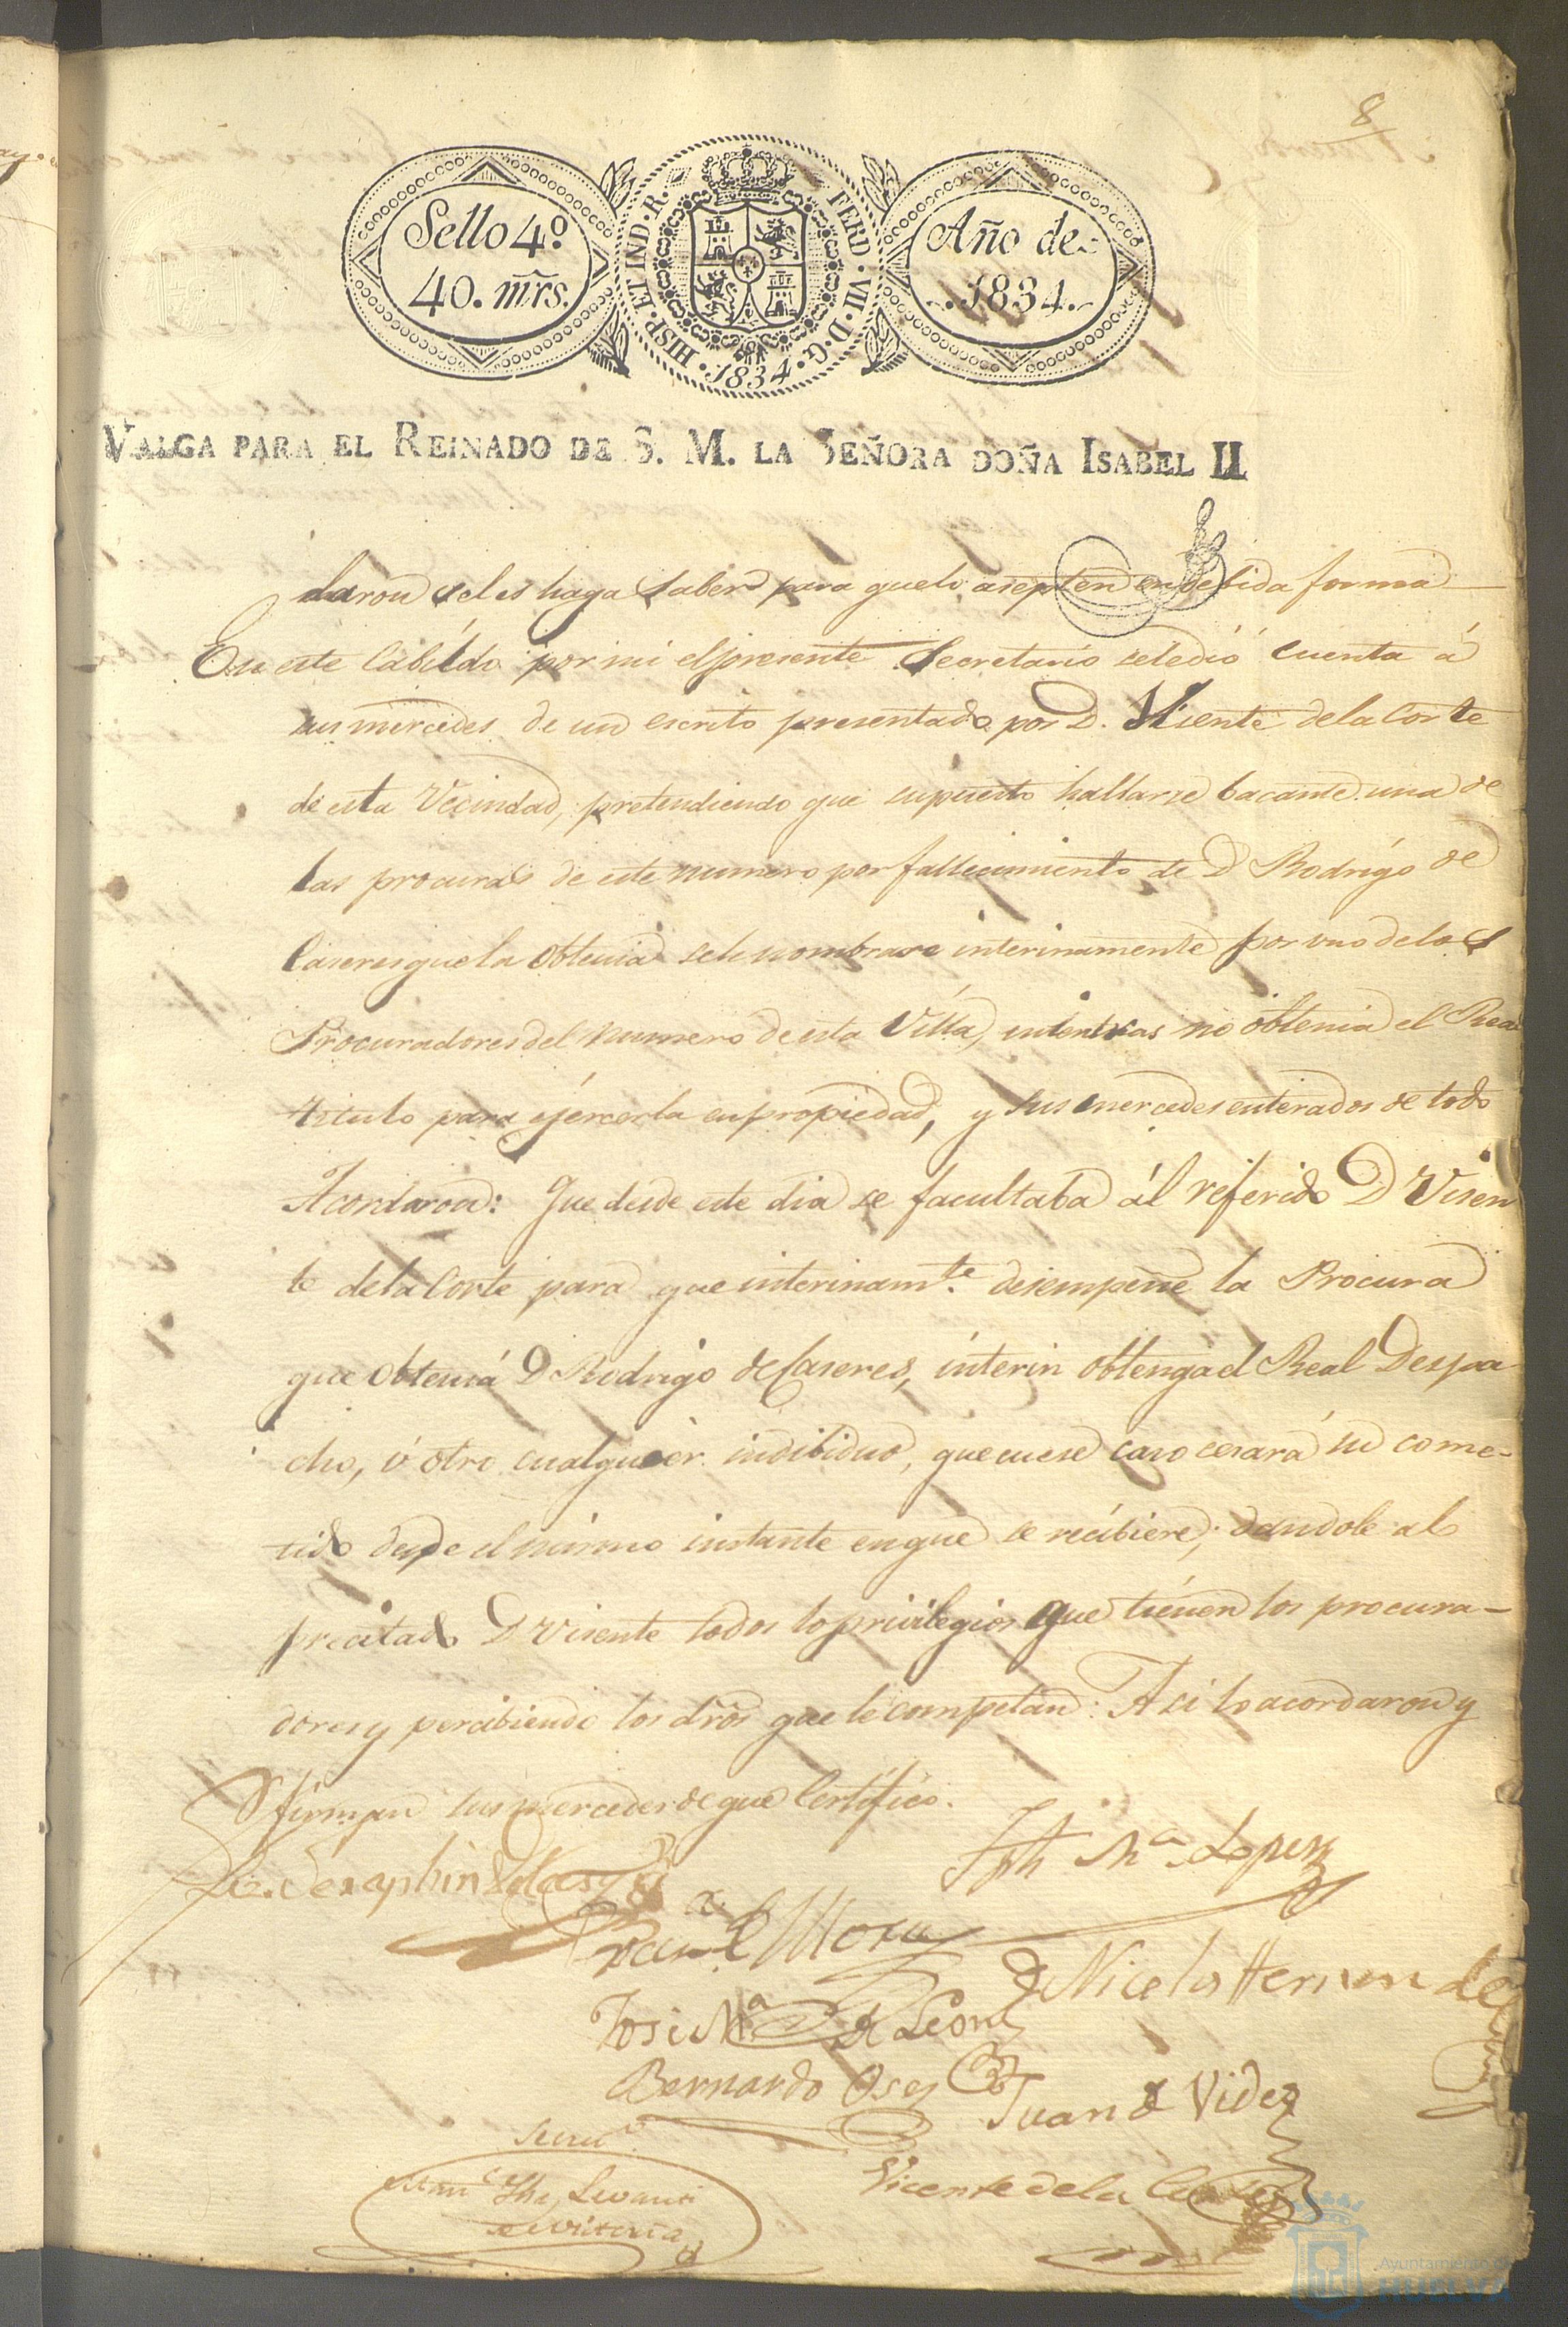 8
Sello 4º.
40. mrs.
HISP. ET IND. R. FERD. VII. D. G. 1834.
Año de
1834.
VALGA PARA EL REINADO DE S. M. LA SEÑORA DOÑA ISABEL II
daron seles haga saber para que lo asepten en debida forma
En este Cabildo por mi el presente Secretario se le dió cuenta á
sus mercedes de un escrito presentado por D. Visente de la Corte
de esta Vecindad, pretendiendo que supuesto hallarse bacante una de
las procuras de este numero por fallecimiento de D Rodrigo de
Caseres que la obtenia se le nombrase interinamente por uno de los
Procuradores del numero de esta Villa, interin no obtenia el Real
titulo para ejercerla en propiedad, y sus mercedes enterados de todo
Acordaron: Que desde este dia se facultaba ál referido D Visen
te de la Corte para que interinamte. desempeñe la Procura
que obtenia D Rodrigo de Caseres, interin obtenga el Real Despa
cho, ú otro cualquier indibiduo, que en ese caso cesará su come-
tido desde el mismo instante en que se recibiere; dandole al
precitado D Visente todos los privilegios que tienen los procura-
dores y percibiendo los dros que le competan: Asi lo acordaron y
firman sus mercedes de que Certifico.
Liz. Seraphin
Jph Ma. Lopez
Mora
Nicolas Hernandez
José Ma. de Leon
Bernardo Oses
Juan de Vides
Vicente de la Corte
Ayuntamiento de
HUELVA